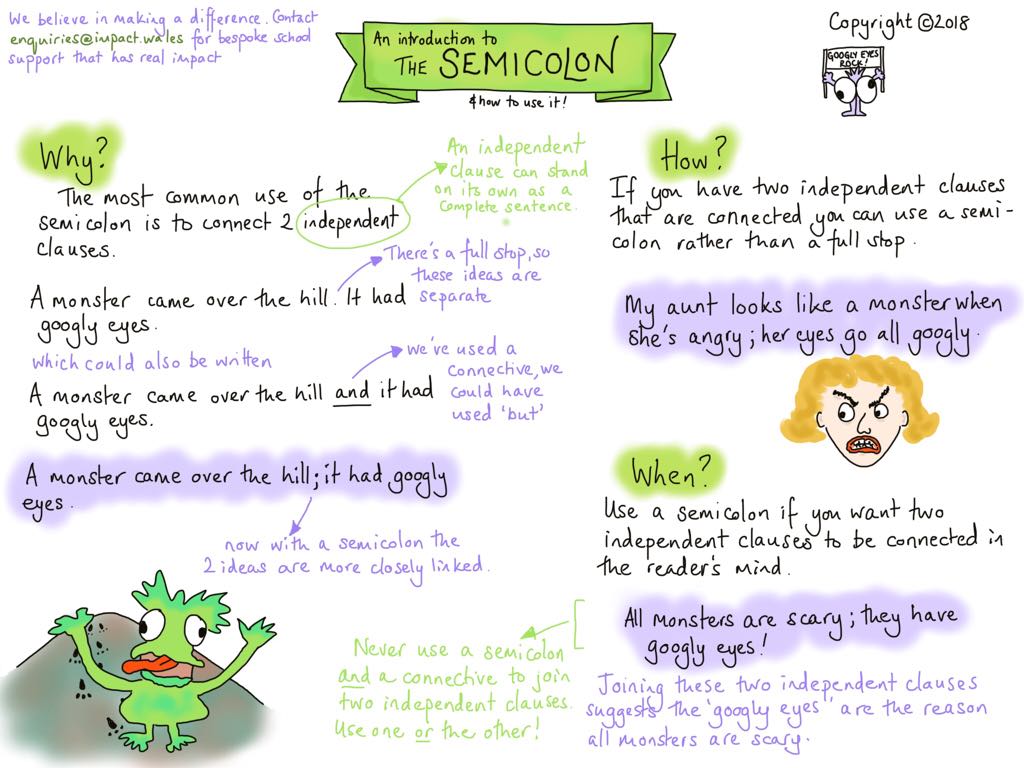 We believe in making a difference. Contact
enquiries@impact.wales for bespoke school
support that has real impact
An introduction to
THE SEMICOLON
& how to use it!
Copyright ©2018
GOOGLY EYES
ROCK!
Why?
The most common use of the
semicolon is to connect 2 independent
clauses.
An independent
clause can stand
on its own as a
complete sentence.
There's a full stop, so
these ideas are
separate
A monster came over the hill. It had
googly eyes.
which could also be written
we've used a
connective, we
could have
used 'but'
A monster came over the hill and it had
googly eyes.
A monster came over the hill; it had googly
eyes.
now with a semicolon the
2 ideas are more closely linked.
Never use a semicolon
and a connective to join
two independent clauses.
Use one or the other!
How?
If you have two independent clauses
that are connected you can use a semi-
colon rather than a full stop.
My aunt looks like a monster when
she's angry; her eyes go all googly.
When?
Use a semicolon if you want two
independent clauses to be connected in
the reader's mind.
All monsters are scary; they have
googly eyes!
Joining these two independent clauses
suggests the "googly eyes" are the reason
all monsters are scary.